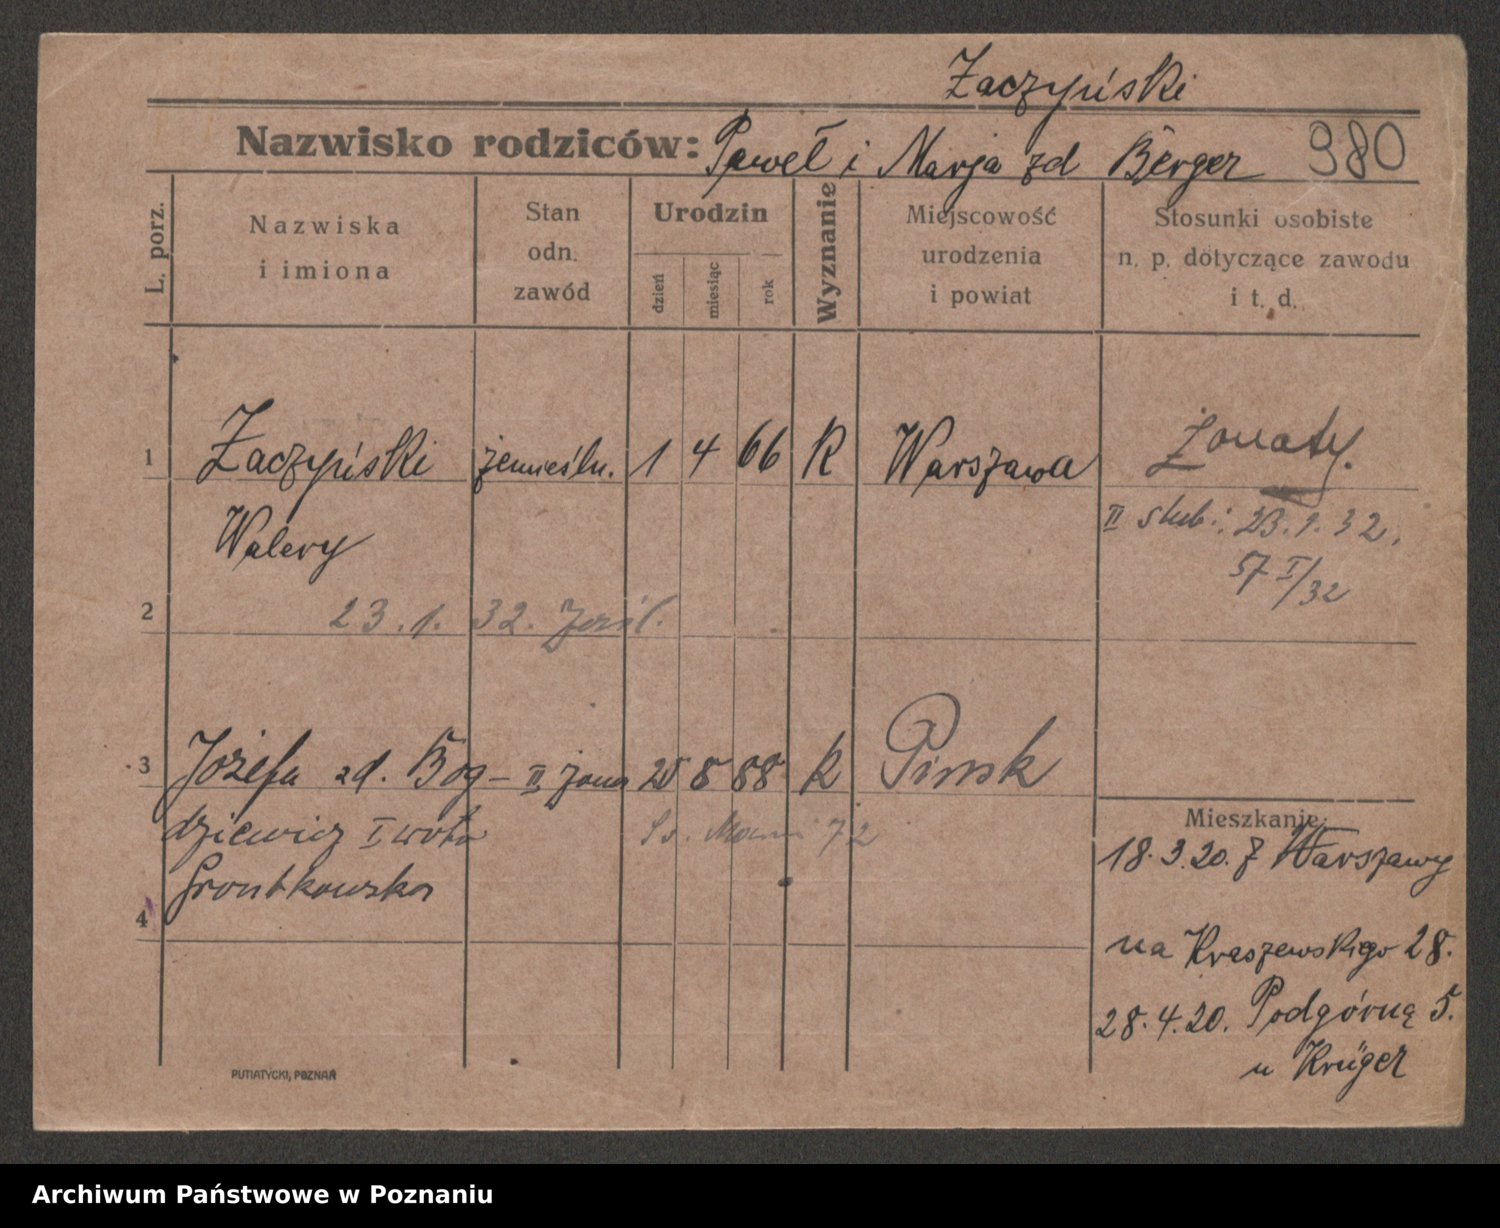 Zaczyński
Nazwisko rodziców: Paweł i Marja zd Berger 980
L. porz.
Nazwiska i imiona
Stan odn. zawód
Urodzin
dzień miesiąc rok
Wyznanie
Miejscowość urodzenia i powiat
Stosunki osobiste n. p. dotyczące zawodu i t. d.
1 Zaczyński 1 4 66 K Warszawa Żonaty.
Walery
II slub: 23.1.32.
57 I/32
2 23.1.32.
3 Józefa zd. Bog- II żona 25 8 88 K Pinsk
dziewicz I voto
72
4
Mieszkanie:
18.3.20. z Warszawy
na Kraszewskiego 28.
28.4.20. Podgórną 5.
u Krüger
PUTIATYCKI, POZNAŃ
Archiwum Państwowe w Poznaniu